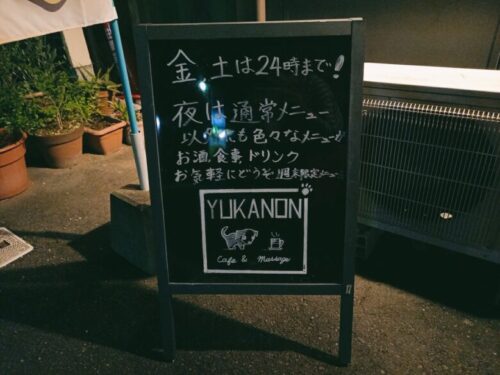 金 土は24時まで!
夜は通常メニュー
以外にも色々なメニューが
お酒 食事 ドリンク
お気軽にどうぞ 週末限定メニュー
YUKANON
Cafe &